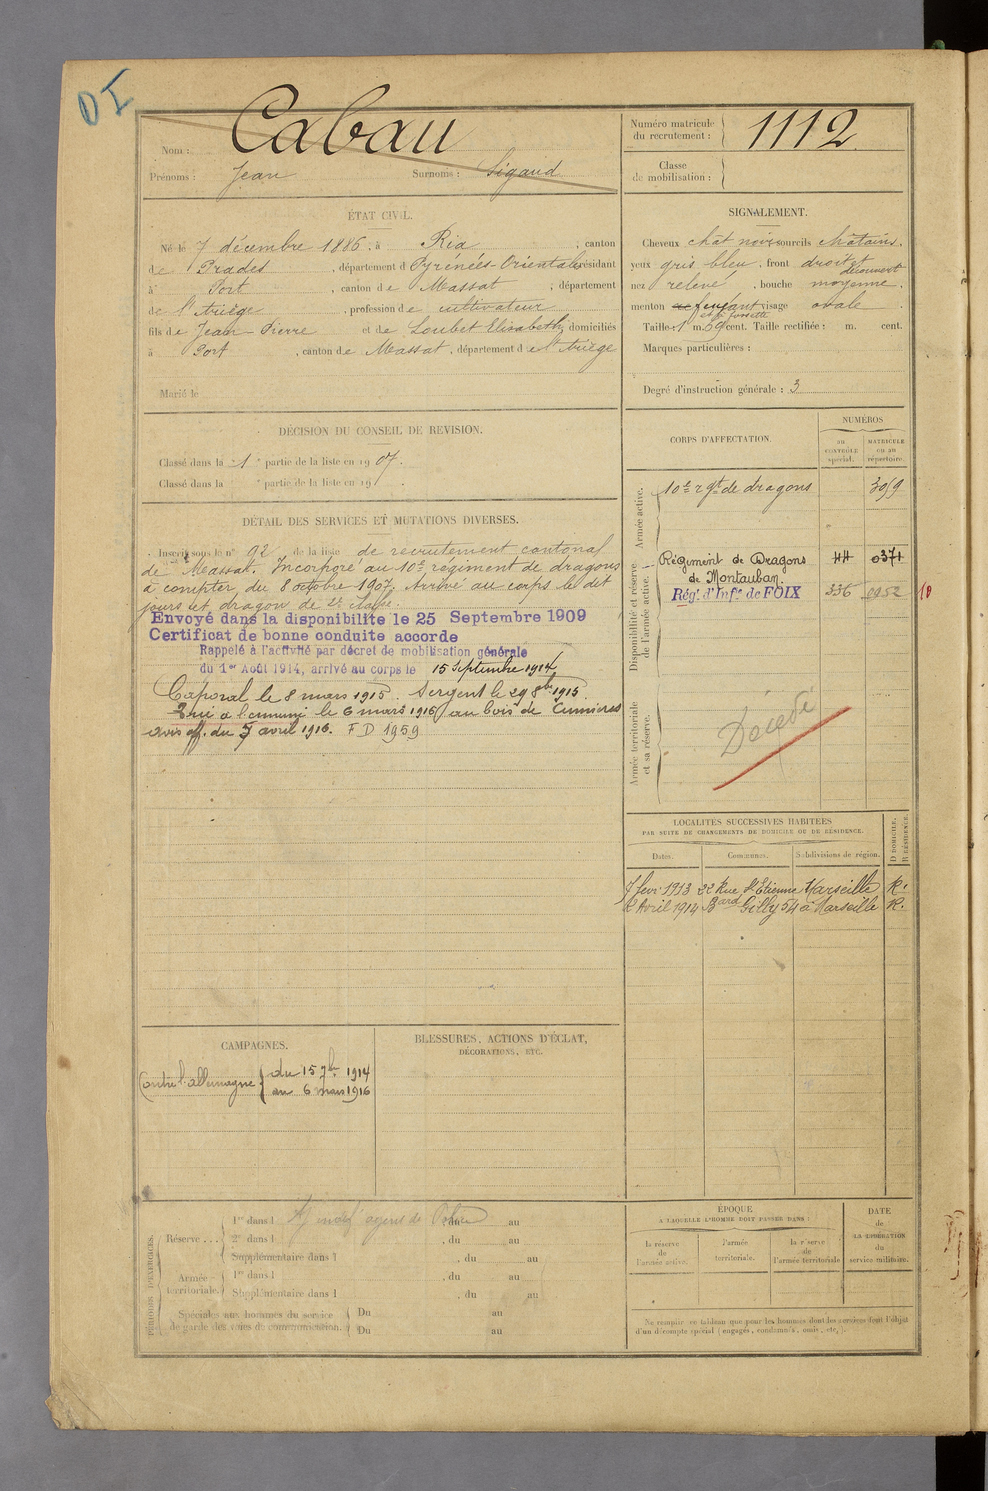 DI
Nom : Cabau
Prénoms : Jean Surnoms : Sigaud
Numéro matricule du recrutement : 1112
Classe de mobilisation :
ÉTAT CIVIL.
Né le 7 décembre 1886, à Ria ; canton
de Prades, département d Pyrénées-Orientales résidant
à Port, canton de Massat ; département
de l'Ariège, profession de cultivateur
fils de Jean-Pierre et de Loubet Elisabeth, domiciliés
à Port, canton de Massat, département de l'Ariège
Marié le
SIGNALEMENT.
Cheveux chât noirs sourcils châtains.
yeux gris bleu, front droit et découvert
nez relevé, bouche moyenne.
menton visage ovale
et à fossette
Taille : 1 m. 59 cent. Taille rectifiée : m. cent.
Marques particulières :
Degré d'instruction générale : 3
DÉCISION DU CONSEIL DE REVISION.
Classé dans la 1 partie de la liste en 1907.
Classé dans la partie de la liste en 19 .
CORPS D'AFFECTATION.
NUMÉROS
au CONTRÔLE spécial.
MATRICULE ou au répertoire.
Armée active.
10e rgt de dragons 3059
Disponibilité et réserve de l'armée active.
Régiment de Dragons 44 0371
de Montauban.
Régt d'Infie de FOIX 336 0952 10
Armée territoriale et sa réserve.
Décédé
DÉTAIL DES SERVICES ET MUTATIONS DIVERSES.
Inscrit sous le n° 92 de la liste de recrutement cantonal
de Massat. Incorporé au 10e régiment de dragons
à compter du 8 octobre 1907. Arrivé au corps le dit
jours et dragon de 2e classe.
Envoyé dans la disponibilité le 25 Septembre 1909
Certificat de bonne conduite accordé
Rappelé à l'activité par décret de mobilisation générale
du 1er Août 1914, arrivé au corps le 15 Septembre 1914
Caporal le 8 mars 1915. Sergent le 29 8bre 1915.
Tué à l'ennemi le 6 mars 1916 au bois de Cumières
avis off. du 5 avril 1916. F D 1959
LOCALITÉS SUCCESSIVES HABITÉES
PAR SUITE DE CHANGEMENTS DE DOMICILE OU DE RÉSIDENCE.
Dates. Communes. Subdivisions de région. D DOMICILE. R RÉSIDENCE.
7 fevr 1913 22 Rue St Etienne Marseille R.
2 Avril 1914 Bard Gilly 54 à Marseille R.
CAMPAGNES.
Contre l'allemagne du 15 7bre 1914
au 6 mars 1916
BLESSURES, ACTIONS D'ÉCLAT,
DÉCORATIONS, ETC.
PÉRIODES D'EXERCICES.
Réserve
1re dans l , du au
2e dans l , du au
Supplémentaire dans l , du au
Armée territoriale.
1re dans l , du au
Supplémentaire dans l , du au
Spéciales aux hommes du service
de garde des voies de communication.
Du au
Du au
ÉPOQUE
A LAQUELLE L'HOMME DOIT PASSER DANS :
la réserve de l'armée active.
l'armée territoriale.
la réserve de l'armée territoriale
DATE
de
LA LIBÉRATION
du
service militaire.
Ne remplir ce tableau que pour les hommes dont les services font l'objet
d'un décompte spécial (engagés, condamnés, omis, etc.).